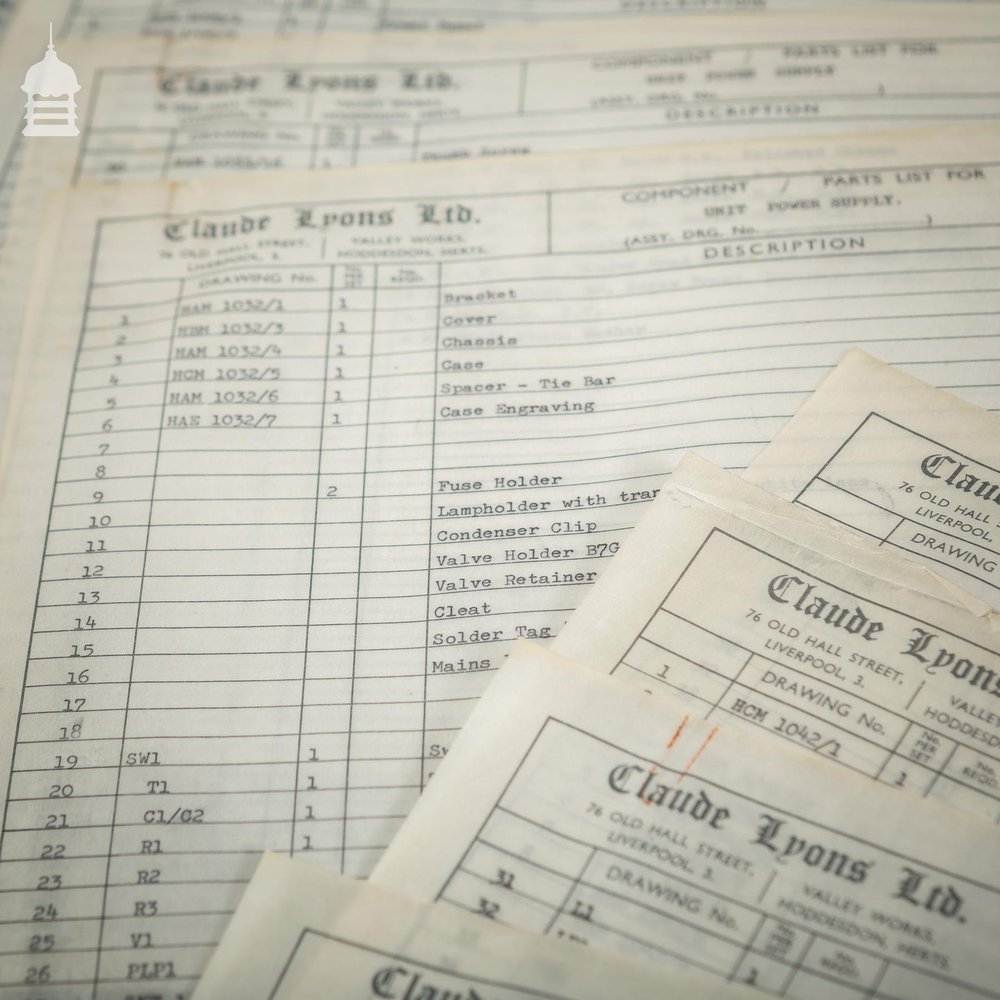 Claude Lyons Ltd.
COMPONENT / PARTS LIST FOR
UNIT POWER SUPPLY
(ASSY. DRG. No. )
DESCRIPTION
DRAWING No.
Claude Lyons Ltd.
76 OLD HALL STREET,
LIVERPOOL, 3.
VALLEY WORKS,
HODDESDON, HERTS.
COMPONENT / PARTS LIST FOR
UNIT POWER SUPPLY.
(ASSY. DRG. No. )
DRAWING No.
No. PER SET
No. REQD.
DESCRIPTION
1 HAM 1032/1 1 Bracket
2 HBM 1032/3 1 Cover
3 HAM 1032/4 1 Chassis
4 HCM 1032/5 1 Case
5 HAM 1032/6 1 Spacer - Tie Bar
6 HAE 1032/7 1 Case Engraving
7
8
9 2 Fuse Holder
10 Lampholder with
11 Condenser Clip
12 Valve Holder B7G
13 Valve Retainer
14 Cleat
15 Solder Tag
16 Mains
17
18
19 SW1 1
20 T1 1
21 C1/C2 1
22 R1 1
23 R2
24 R3
25 V1
26 PLP1
Clau
76 OLD HALL
LIVERPOOL,
DRAWING
Claude Lyons
76 OLD HALL STREET,
LIVERPOOL, 3.
VALLEY
HODDESD
DRAWING No.
No. PER SET
No. REQD.
1 HCM 1042/1 1
Claude Lyons Ltd.
76 OLD HALL STREET,
LIVERPOOL, 3.
VALLEY WORKS,
HODDESDON, HERTS.
DRAWING No.
No. PER SET
No. REQD.
31 L1
32 1
Claude